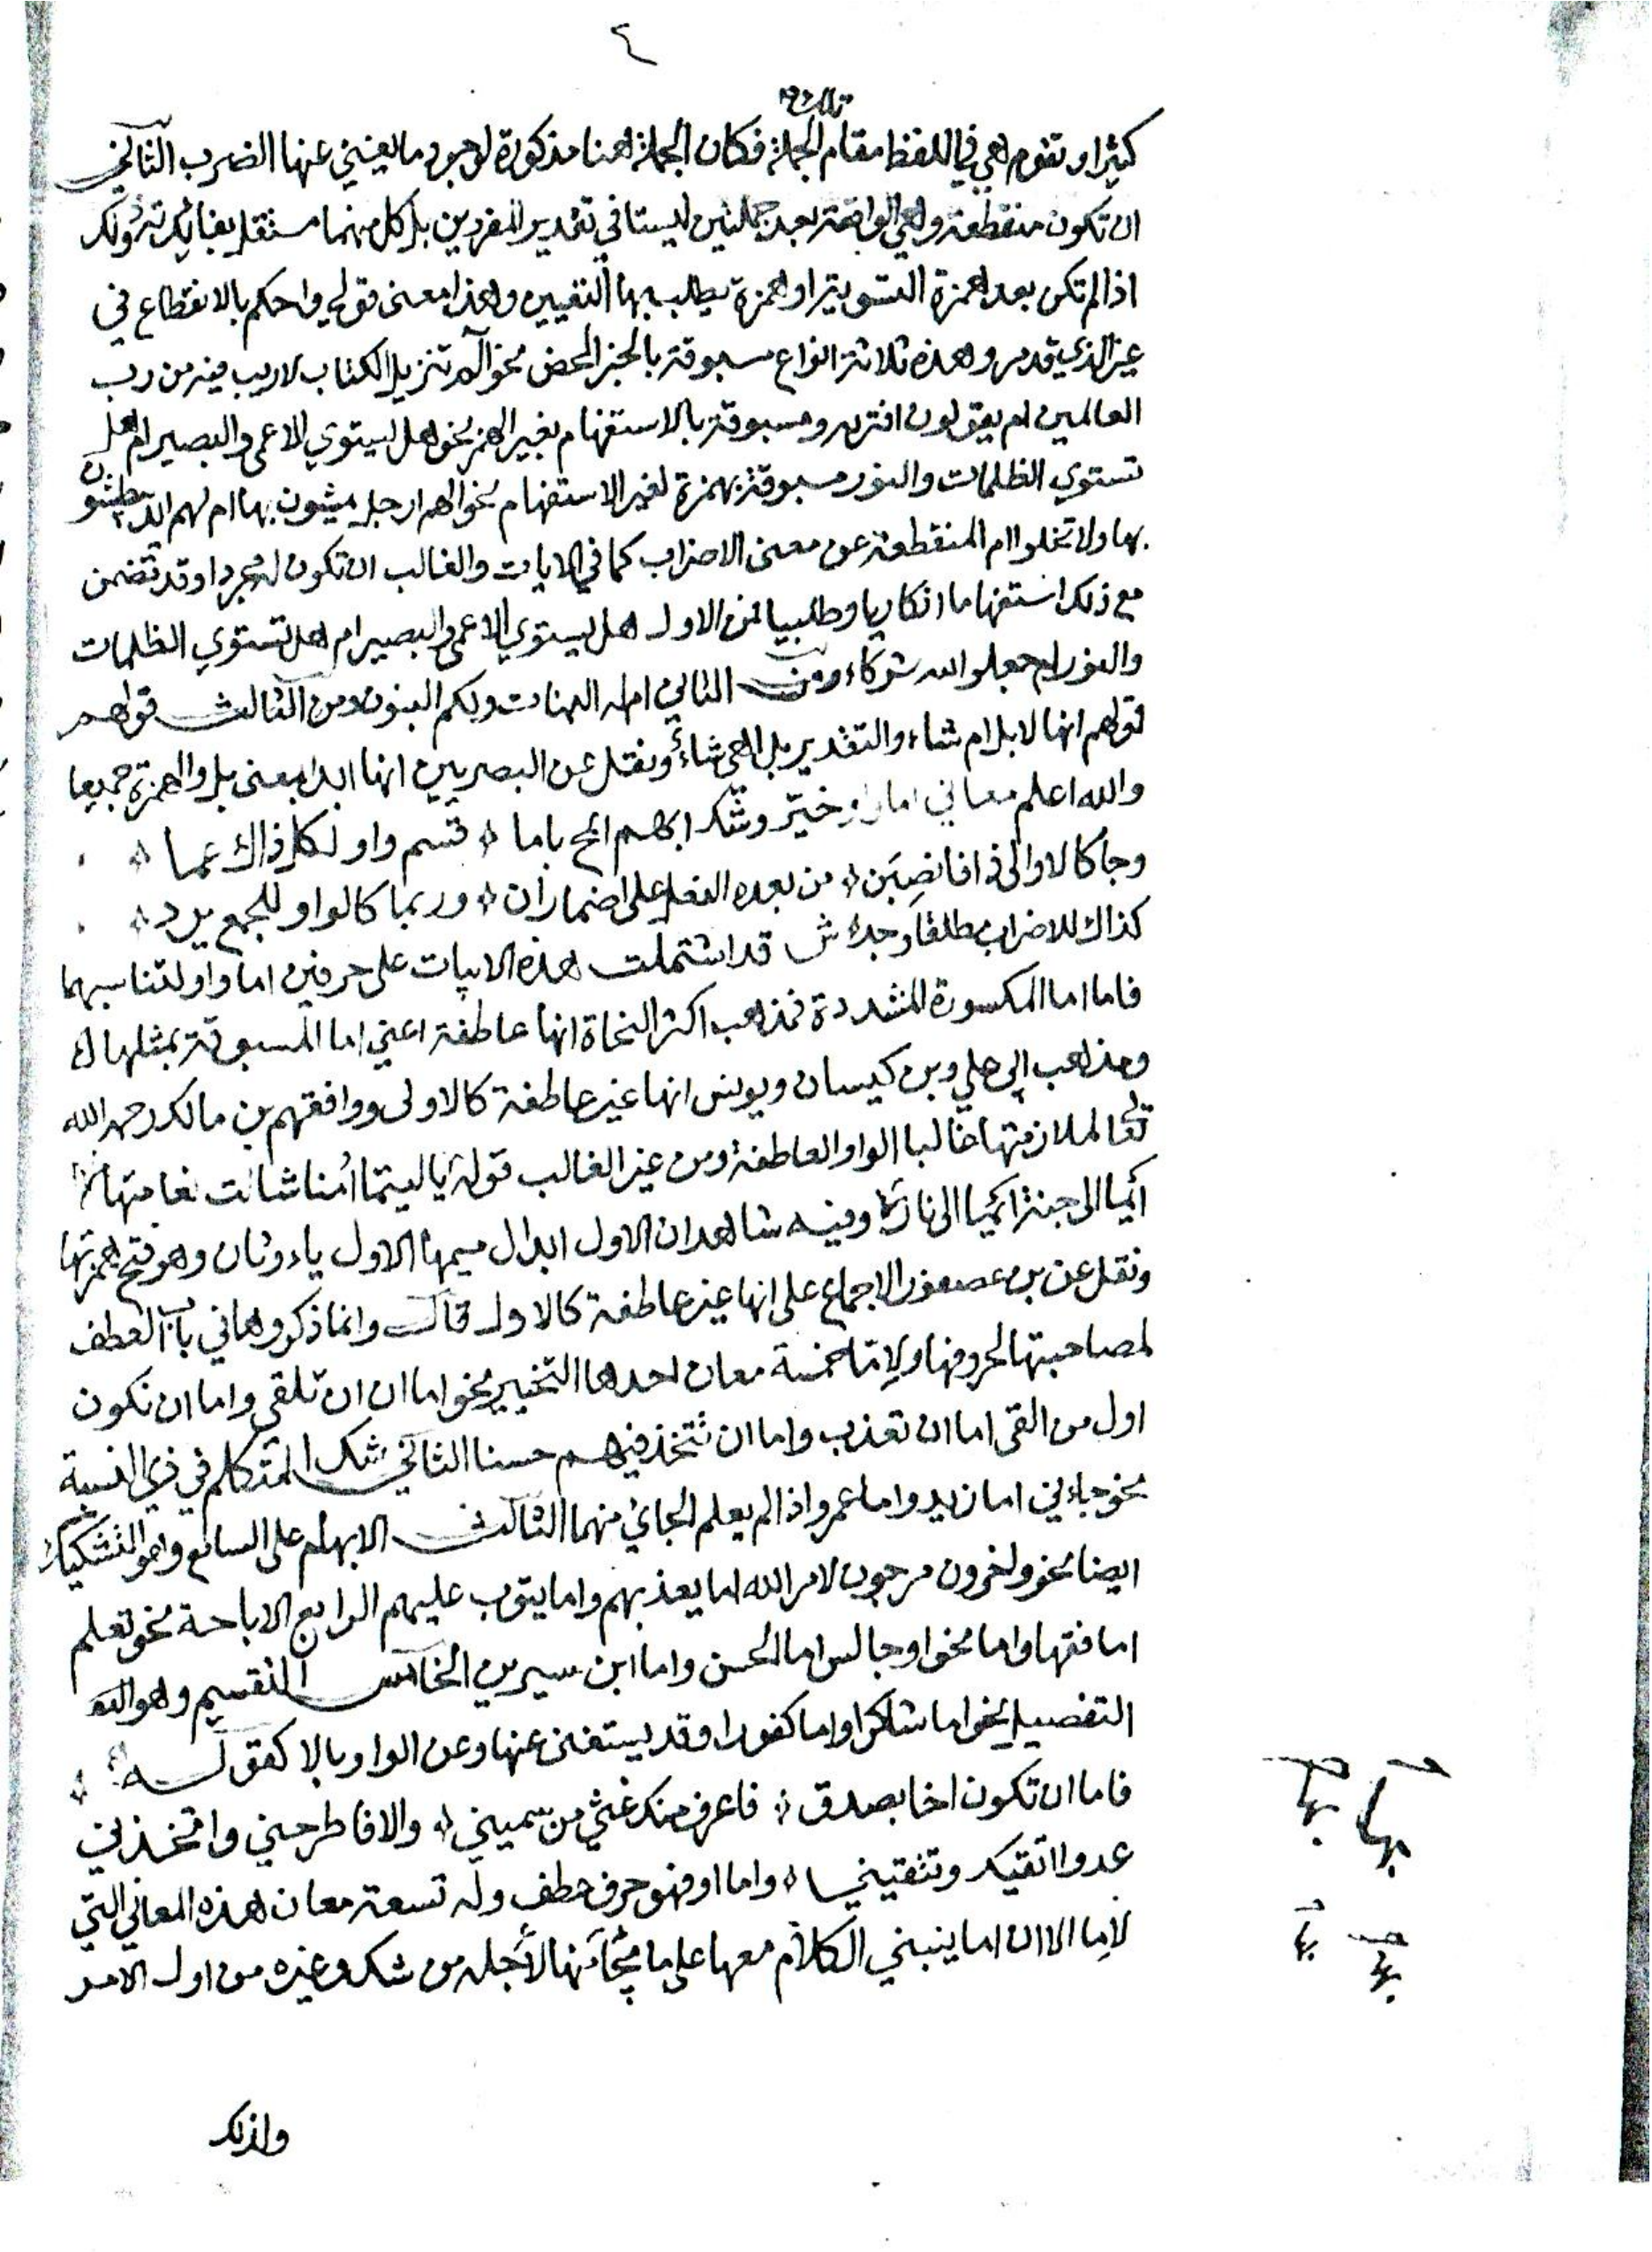 ٤
تلك الجملة
كثيرا وتقوم هي في اللفظ مقام الجملة فكان الجملة هنا مذكورة لوجود ما يغني عنها الضرب الثاني
ان تكون منقطعة وهي الواقعة بعد جملتين ليستا في تقدير المفردين بل كل منهما مستقل بفائدته وذلك
اذا لم تكن بعد همزة التسوية او همزة يطلب بها التعيين وهذا معنى قولي واحكم بالانقطاع في
غير الذي قدم وهذه ثلاثة انواع مسبوقة بالخبر المحض نحو الم تنزيل الكتاب لا ريب فيه من رب
العالمين ام يقولون افتريه ومسبوقة بالاستفهام بغير الهمز نحو هل يستوي الاعمى والبصير ام هل
تستوي الظلمات والنور مسبوقة بهمزة لغير الاستفهام نحو الهم ارجل يمشون بها ام لهم ايد يبطشون
بها ولا تخلوا ام المنقطعة عن معنى الاضراب كما في الايات والغالب ان تكون له مجردا وقد تضمن
مع ذلك استفهاما انكاريا وطلبيا فمن الاول هل يستوي الاعمى والبصير ام هل تستوي الظلمات
والنور ام جعلوا لله شركاء ومن الثاني ام له البنات ولكم البنون ومن الثالث قولهم
قولهم انها لابل ام شاء والتقدير بل اهي شاء ونقل عن البصريين انها ابدا بمعنى بل والهمزة جميعا
والله اعلم معاني اما او خيّر وشك ابهم ابح باما ۞ قسم واو لكل ذاك عما ۞
وجا كالا والى اذا فانصبن ۞ من بعده الفعل على اضمار ان ۞ وربما كالواو للجمع يرد ۞
كذاك للاضراب مطلقا وجد ش قد اشتملت هذه الابيات على حرفين اما واو لتناسبهما
فاما اما المكسورة المشددة فمذهب اكثر النحاة انها عاطفة اعني اما المسبوقة بمثلها
ومذهب ابي علي وبن كيسان ويونس انها غير عاطفة كالاولى ووافقهم بن مالك رحمه الله
تعالى لملازمتها غالبا الواو العاطفة ومن غير الغالب قوله يا ليتما امنا شالت نعامتها
ايما الى جنة ايما الى نار وفيه شاهدان الاول ابدال ميمها الاول ياء وثان وهو فتح همزتها
ونقل عن بن عصفور الاجماع على انها غير عاطفة كالاول قال وانما ذكروها في باب العطف
لمصاحبتها لحروفها ولامّا خمسة معان احدها التخيير نحو اما ان ان تلقي واما ان نكون
اول من القى اما ان تعذب واما ان تتخذ فيهم حسنا الثاني شك المتكلم في ذي النسبة
نحو جاءني اما زيد واما عمرو اذا لم يعلم الجائي منهما الثالث الابهام على السامع وهو التشكيك
ايضا نحو واخرون مرجون لامر الله اما يعذبهم واما يتوب عليهم الرابع الاباحة نحو تعلم
اما فقها واما نحوا وجالس اما الحسن واما ابن سيرين الخامس التقسيم وهو
التفصيل نحو اما شاكرا واما كفورا وقد يستغنى عنها وعن الواو بالا كقوله ۞
فاما ان تكون اخا بصدق ۞ فاعرف منك غثي من سميني ۞ والا فاطرحني واتخذني
عدوا اتقيك وتتقيني ۞ واما او فهو حرف عطف وله تسعة معان هذه المعاني التي
لامّا الا ان اما ينبني الكلام معها على ما يجاء بها لاجله من شك وغيره من اول الامر
ولذلك